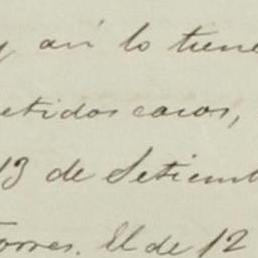 y así lo tiene
etidos casos,
13 de Setiemb
Torres. El de 12